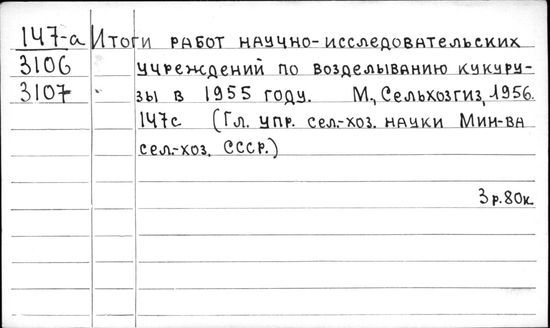 147-а Итоги работ научно-исследовательских
3106 учреждений по возделыванию кукуру-
3107 зы в 1955 году. М., Сельхозгиз, 1956.
147с (Гл. упр. сел.-хоз. науки Мин-ва
сел.-хоз. СССР.)
3р.80к.